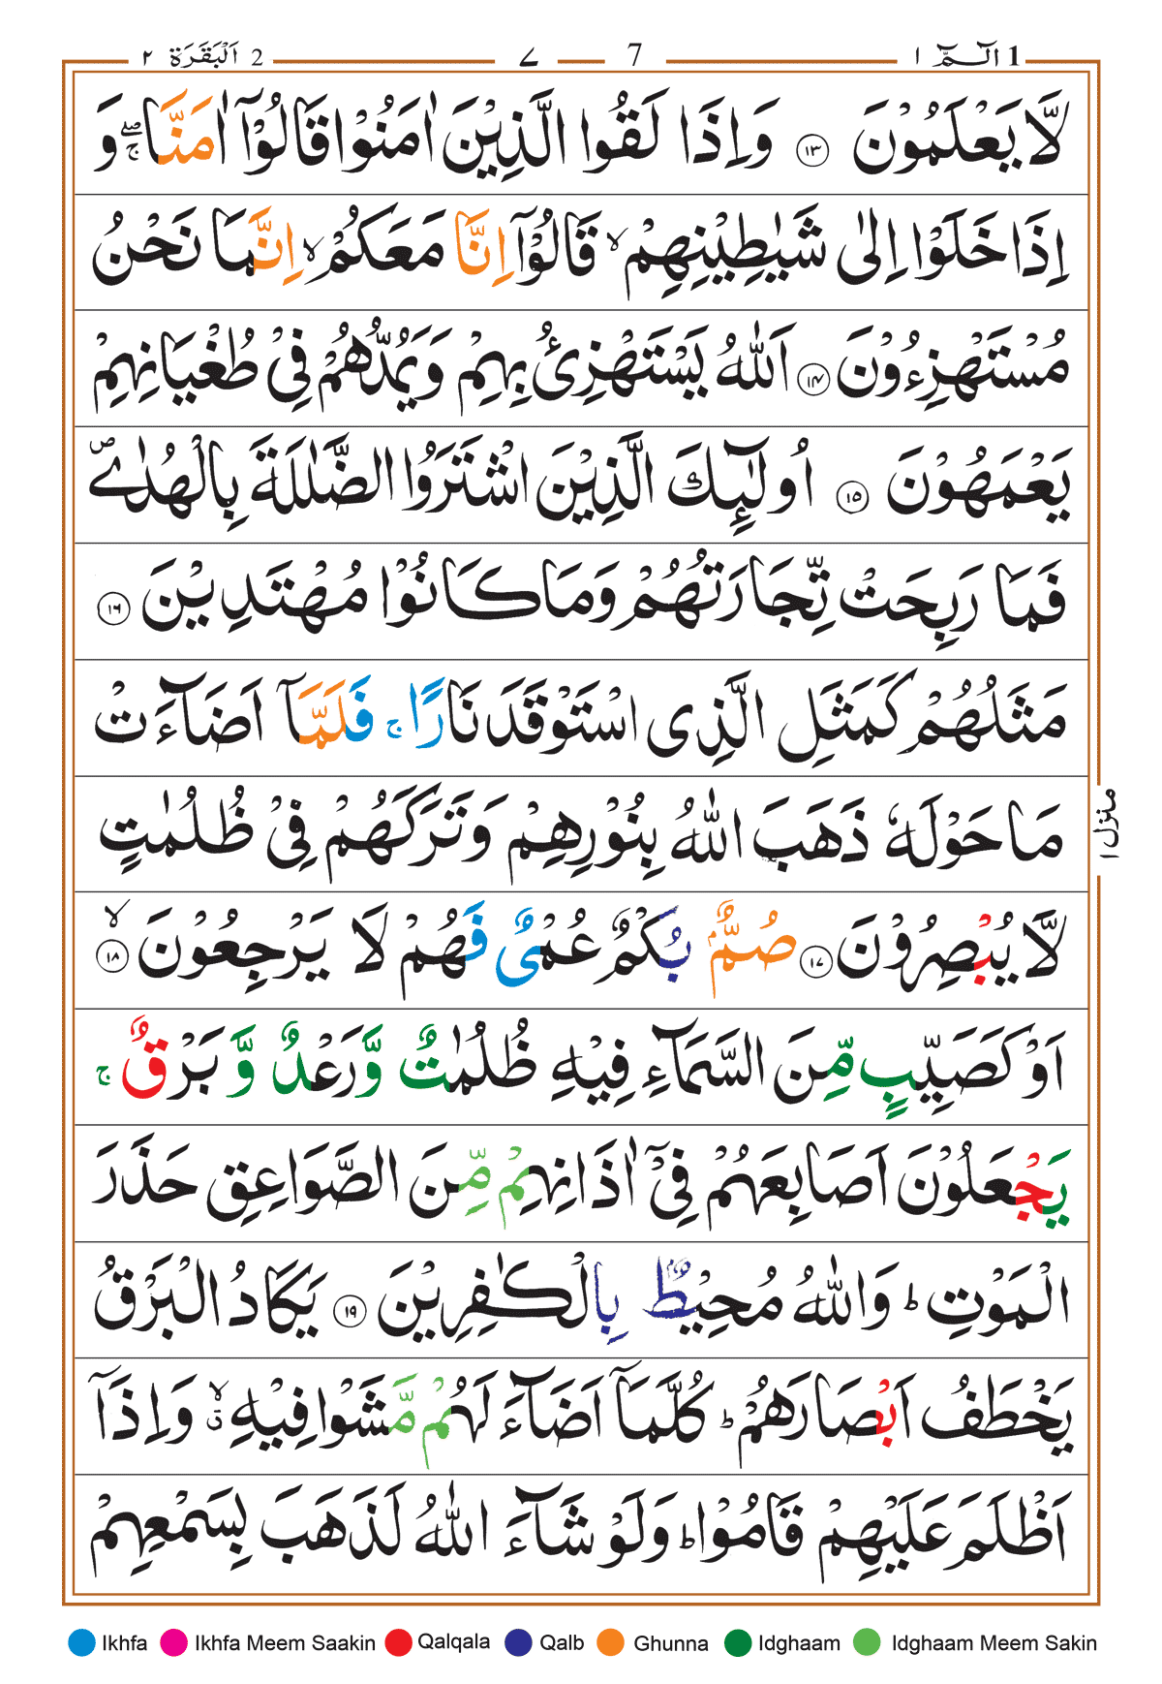 1 الٓـمّٓ ١ 7 ٧ 2 اَلْبَقَرَة ٢
لَّا يَعْلَمُوْنَ ﴿١٣﴾ وَاِذَا لَقُوا الَّذِيْنَ اٰمَنُوْا قَالُوْۤا اٰمَنَّا ۖۚ وَ
اِذَا خَلَوْا اِلٰى شَيٰطِيْنِهِمْ ۙ قَالُوْۤا اِنَّا مَعَكُمْ ۙ اِنَّمَا نَحْنُ
مُسْتَهْزِءُوْنَ ﴿١٤﴾ اَللّٰهُ يَسْتَهْزِئُ بِهِمْ وَيَمُدُّهُمْ فِيْ طُغْيَانِهِمْ
يَعْمَهُوْنَ ﴿١٥﴾ اُولٰٓئِكَ الَّذِيْنَ اشْتَرَوُا الضَّلٰلَةَ بِالْهُدٰى ۪
فَمَا رَبِحَتْ تِّجَارَتُهُمْ وَمَا كَانُوْا مُهْتَدِيْنَ ﴿١٦﴾
مَثَلُهُمْ كَمَثَلِ الَّذِى اسْتَوْقَدَ نَارًا ۚ فَلَمَّاۤ اَضَآءَتْ
مَا حَوْلَهٗ ذَهَبَ اللّٰهُ بِنُوْرِهِمْ وَتَرَكَهُمْ فِيْ ظُلُمٰتٍ
لَّا يُبْصِرُوْنَ ﴿١٧﴾ صُمٌّۢ بُكْمٌ عُمْىٌ فَهُمْ لَا يَرْجِعُوْنَ ۙ﴿١٨﴾
اَوْ كَصَيِّبٍ مِّنَ السَّمَآءِ فِيْهِ ظُلُمٰتٌ وَّرَعْدٌ وَّ بَرْقٌ ۚ
يَجْعَلُوْنَ اَصَابِعَهُمْ فِيْۤ اٰذَانِهِمْ مِّنَ الصَّوَاعِقِ حَذَرَ
الْمَوْتِ ؕ وَاللّٰهُ مُحِيْطٌۢ بِالْكٰفِرِيْنَ ﴿١٩﴾ يَكَادُ الْبَرْقُ
يَخْطَفُ اَبْصَارَهُمْ ؕ كُلَّمَاۤ اَضَآءَ لَهُمْ مَّشَوْا فِيْهِ ۙۗ وَاِذَاۤ
اَظْلَمَ عَلَيْهِمْ قَامُوْا ؕ وَلَوْ شَآءَ اللّٰهُ لَذَهَبَ بِسَمْعِهِمْ
منزل ١
Ikhfa Ikhfa Meem Saakin Qalqala Qalb Ghunna Idghaam Idghaam Meem Sakin